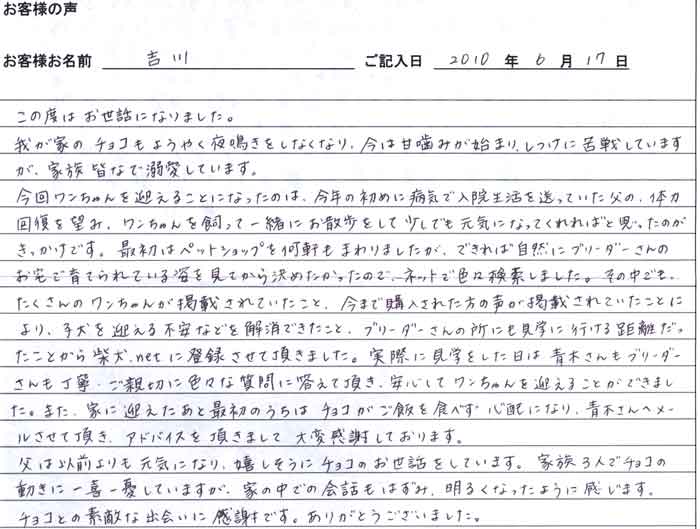 お客様の声
お客様お名前 吉川 ご記入日 2010 年 6 月 17 日
この度は お世話になりました。
我が家の チョコも ようやく 夜鳴きをしなくなり、今は甘噛みが始まり、しつけに 苦戦しています
が、家族 皆なで 溺愛しています。
今回ワンちゃんを 迎えることになったのは、今年の初めに病気で入院生活を送っていた父の、体力
回復を望み、ワンちゃんを飼って一緒にお散歩をして少しでも元気になってくれればと思ったのが
きっかけです。最初はペットショップを何軒も まわりましたが、できれば自然にブリーダーさんの
お宅で育てられている姿を見てから決めたかったので、ネットで色々検索しました。その中でも、
たくさんのワンちゃんが掲載されていたこと、今まで購入された方の声が掲載されていたことに
より、子犬を迎える不安などを解消できたこと、ブリーダーさんの所にも見学に行ける距離だっ
たことから柴犬.netに登録させて頂きました。実際に見学をした日は青木さんもブリーダー
さんも丁寧・ご親切に色々な質問に答えて頂き、安心してワンちゃんを迎えることができまし
た。また、家に迎えたあと最初のうちはチョコがご飯を食べず心配になり、青木さんへメー
ルさせて頂き、アドバイスを頂きまして 大変感謝しております。
父は以前よりも元気になり、嬉しそうにチョコのお世話をしています。家族3人でチョコの
動きに一喜一憂していますが、家の中での会話もはずみ、明るくなったように感じます。
チョコとの素敵な出会いに感謝です。ありがとうございました。